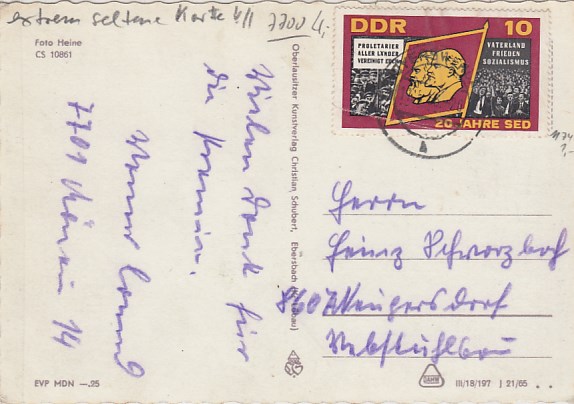 extrem seltene Karte 4/1 7700 4,-
Foto Heine
CS 10861
DDR 10
PROLETARIER
ALLER LÄNDER
VEREINIGT EUCH
VATERLAND
FRIEDEN
SOZIALISMUS
20 JAHRE SED
1,-
Vielen Dank für
die
Werner
7701 14
Oberlausitzer Kunstverlag Christian Schubert, Ebersbach
Herrn
Heinz Schwarzbach
Neugersdorf
Webstuhlbau
EVP MDN —.25
III/18/197 | 21/65